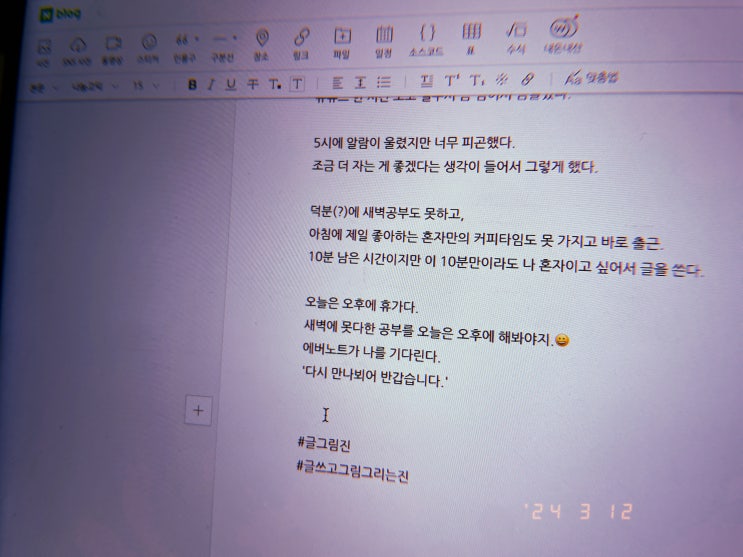 blog
사진 SNS 사진 동영상 스티커 인용구 구분선 장소 링크 파일 일정 소스코드 표 수식 내돈내산
본문 나눔고딕 15 B I U T T T 맞춤법
5시에 알람이 울렸지만 너무 피곤했다.
조금 더 자는 게 좋겠다는 생각이 들어서 그렇게 했다.
덕분(?)에 새벽공부도 못하고,
아침에 제일 좋아하는 혼자만의 커피타임도 못 가지고 바로 출근.
10분 남은 시간이지만 이 10분만이라도 나 혼자이고 싶어서 글을 쓴다.
오늘은 오후에 휴가다.
새벽에 못다한 공부를 오늘은 오후에 해봐야지.😀
에버노트가 나를 기다린다.
'다시 만나뵈어 반갑습니다.'
#글그림진
#글쓰고그림그리는진
'24 3 12